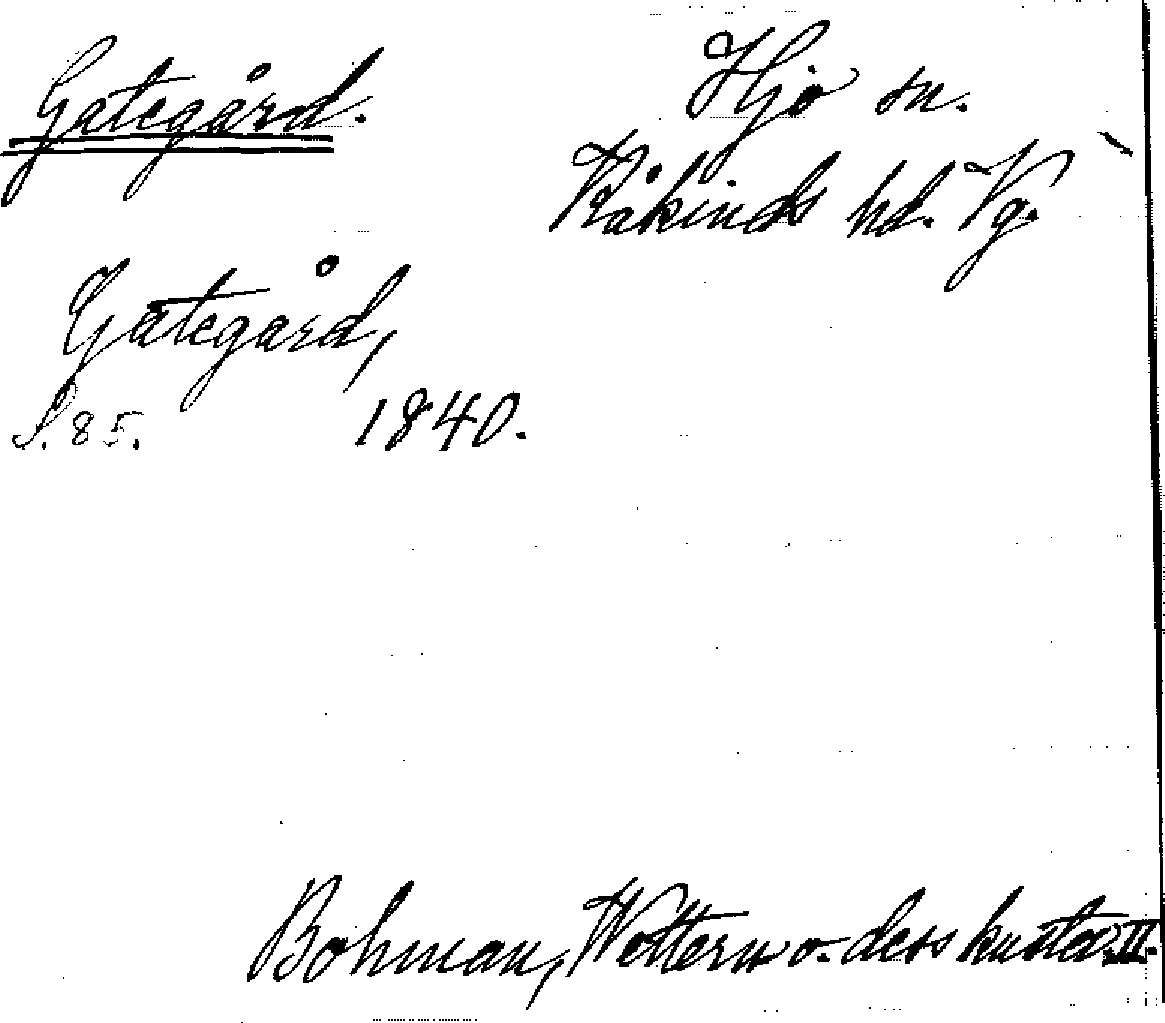 Gategård.
Hjo sn.
Kåkinds hd. Vg.
Gategård,
S. 85. 1840.
Bohman, Wettern o. dess kuster. II.